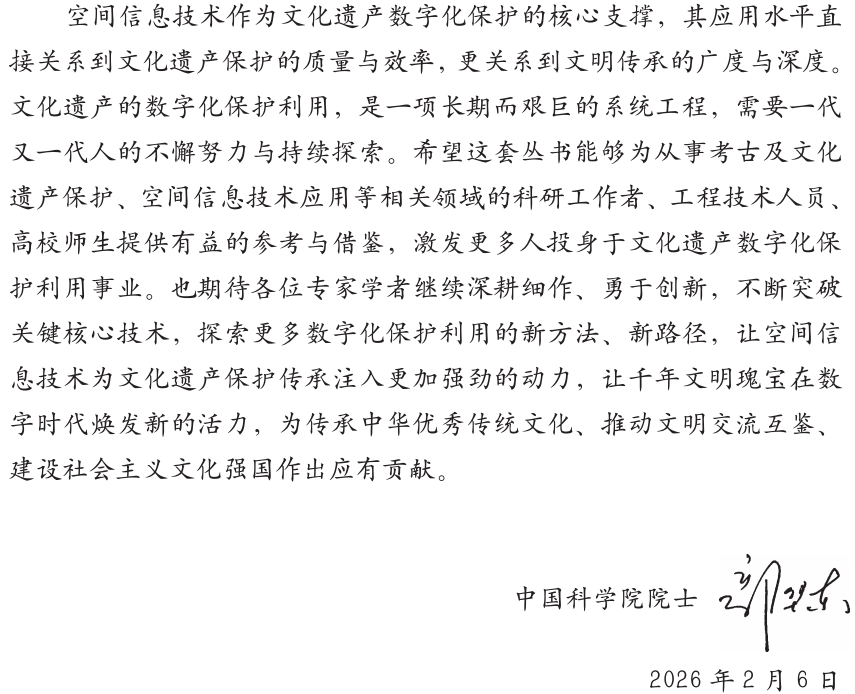 空间信息技术作为文化遗产数字化保护的核心支撑，其应用水平直
接关系到文化遗产保护的质量与效率，更关系到文明传承的广度与深度。
文化遗产的数字化保护利用，是一项长期而艰巨的系统工程，需要一代
又一代人的不懈努力与持续探索。希望这套丛书能够为从事考古及文化
遗产保护、空间信息技术应用等相关领域的科研工作者、工程技术人员、
高校师生提供有益的参考与借鉴，激发更多人投身于文化遗产数字化保
护利用事业。也期待各位专家学者继续深耕细作、勇于创新，不断突破
关键核心技术，探索更多数字化保护利用的新方法、新路径，让空间信
息技术为文化遗产保护传承注入更加强劲的动力，让千年文明瑰宝在数
字时代焕发新的活力，为传承中华优秀传统文化、推动文明交流互鉴、
建设社会主义文化强国作出应有贡献。
中国科学院院士
2026 年 2 月 6 日